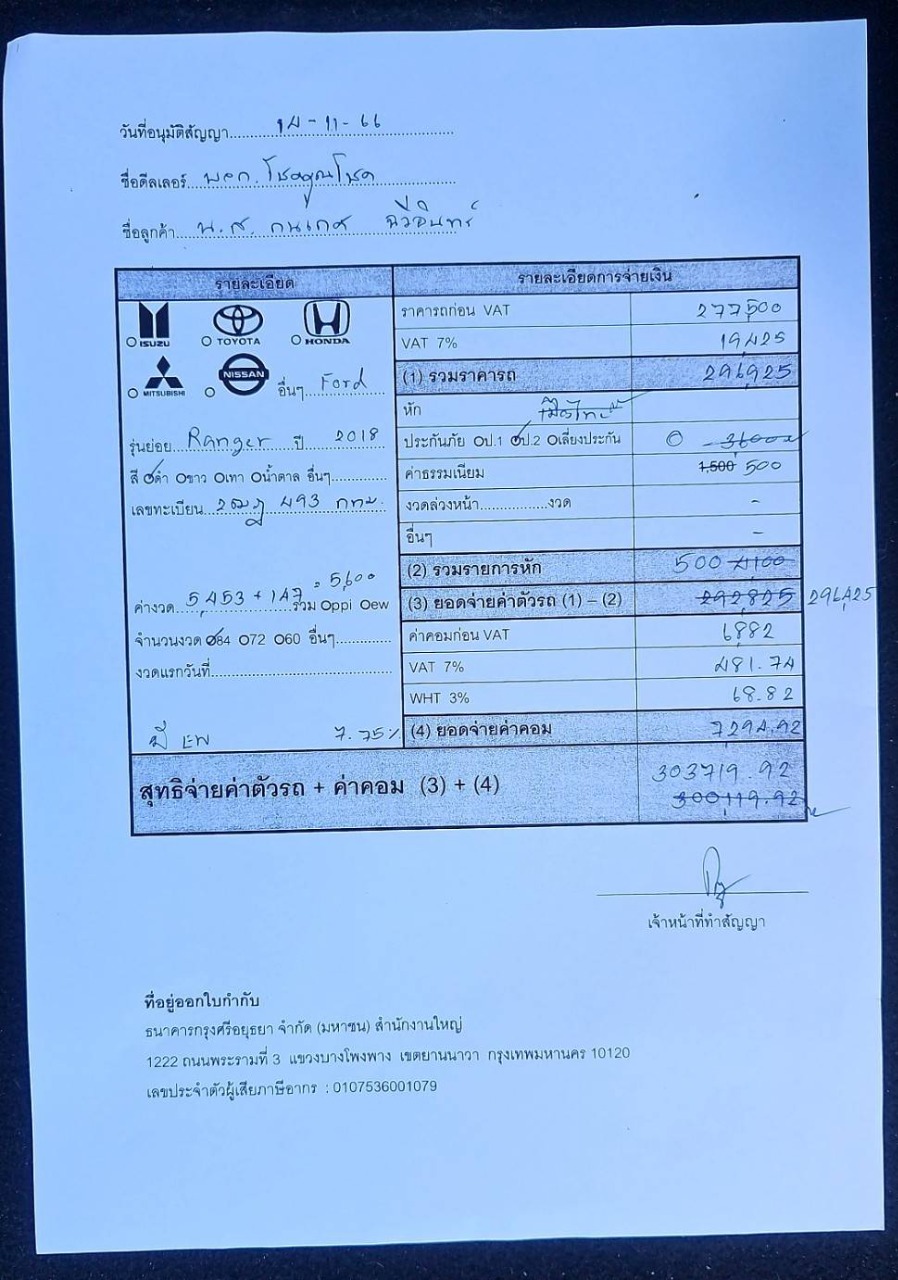 วันที่อนุมัติสัญญา 14-11-66
ชื่อดีลเลอร์ หจก. โชคคูณโชค
ชื่อลูกค้า น.ส. กนเกศ ฉวีอินทร์
รายละเอียด
รายละเอียดการจ่ายเงิน
ISUZU TOYOTA HONDA
MITSUBISHI NISSAN อื่นๆ Ford
รุ่นย่อย Ranger ปี 2018
สี Oดำ Oขาว Oเทา Oน้ำตาล อื่นๆ
เลขทะเบียน 2ฒฎ 493 กทม.
= 5,600
ค่างวด 5,453 + 147 รวม Oppi Oew
จำนวนงวด O84 O72 O60 อื่นๆ
งวดแรกวันที่
มี 7.75%
ราคารถก่อน VAT 277,500
VAT 7% 19,425
(1) รวมราคารถ 296,925
หัก
ประกันภัย Oป.1 Oป.2 Oเลี่ยงประกัน 0 3600
ค่าธรรมเนียม 1,500 500
งวดล่วงหน้า งวด -
อื่นๆ -
(2) รวมรายการหัก 500 4100
(3) ยอดจ่ายค่าตัวรถ (1) – (2) 292,825 296,425
ค่าคอมก่อน VAT 6882
VAT 7% 481.74
WHT 3% 68.82
(4) ยอดจ่ายค่าคอม 7,294.92
สุทธิจ่ายค่าตัวรถ + ค่าคอม (3) + (4) 303719.92
300,119.92
เจ้าหน้าที่ทำสัญญา
ที่อยู่ออกใบกำกับ
ธนาคารกรุงศรีอยุธยา จำกัด (มหาชน) สำนักงานใหญ่
1222 ถนนพระรามที่ 3 แขวงบางโพงพาง เขตยานนาวา กรุงเทพมหานคร 10120
เลขประจำตัวผู้เสียภาษีอากร : 0107536001079